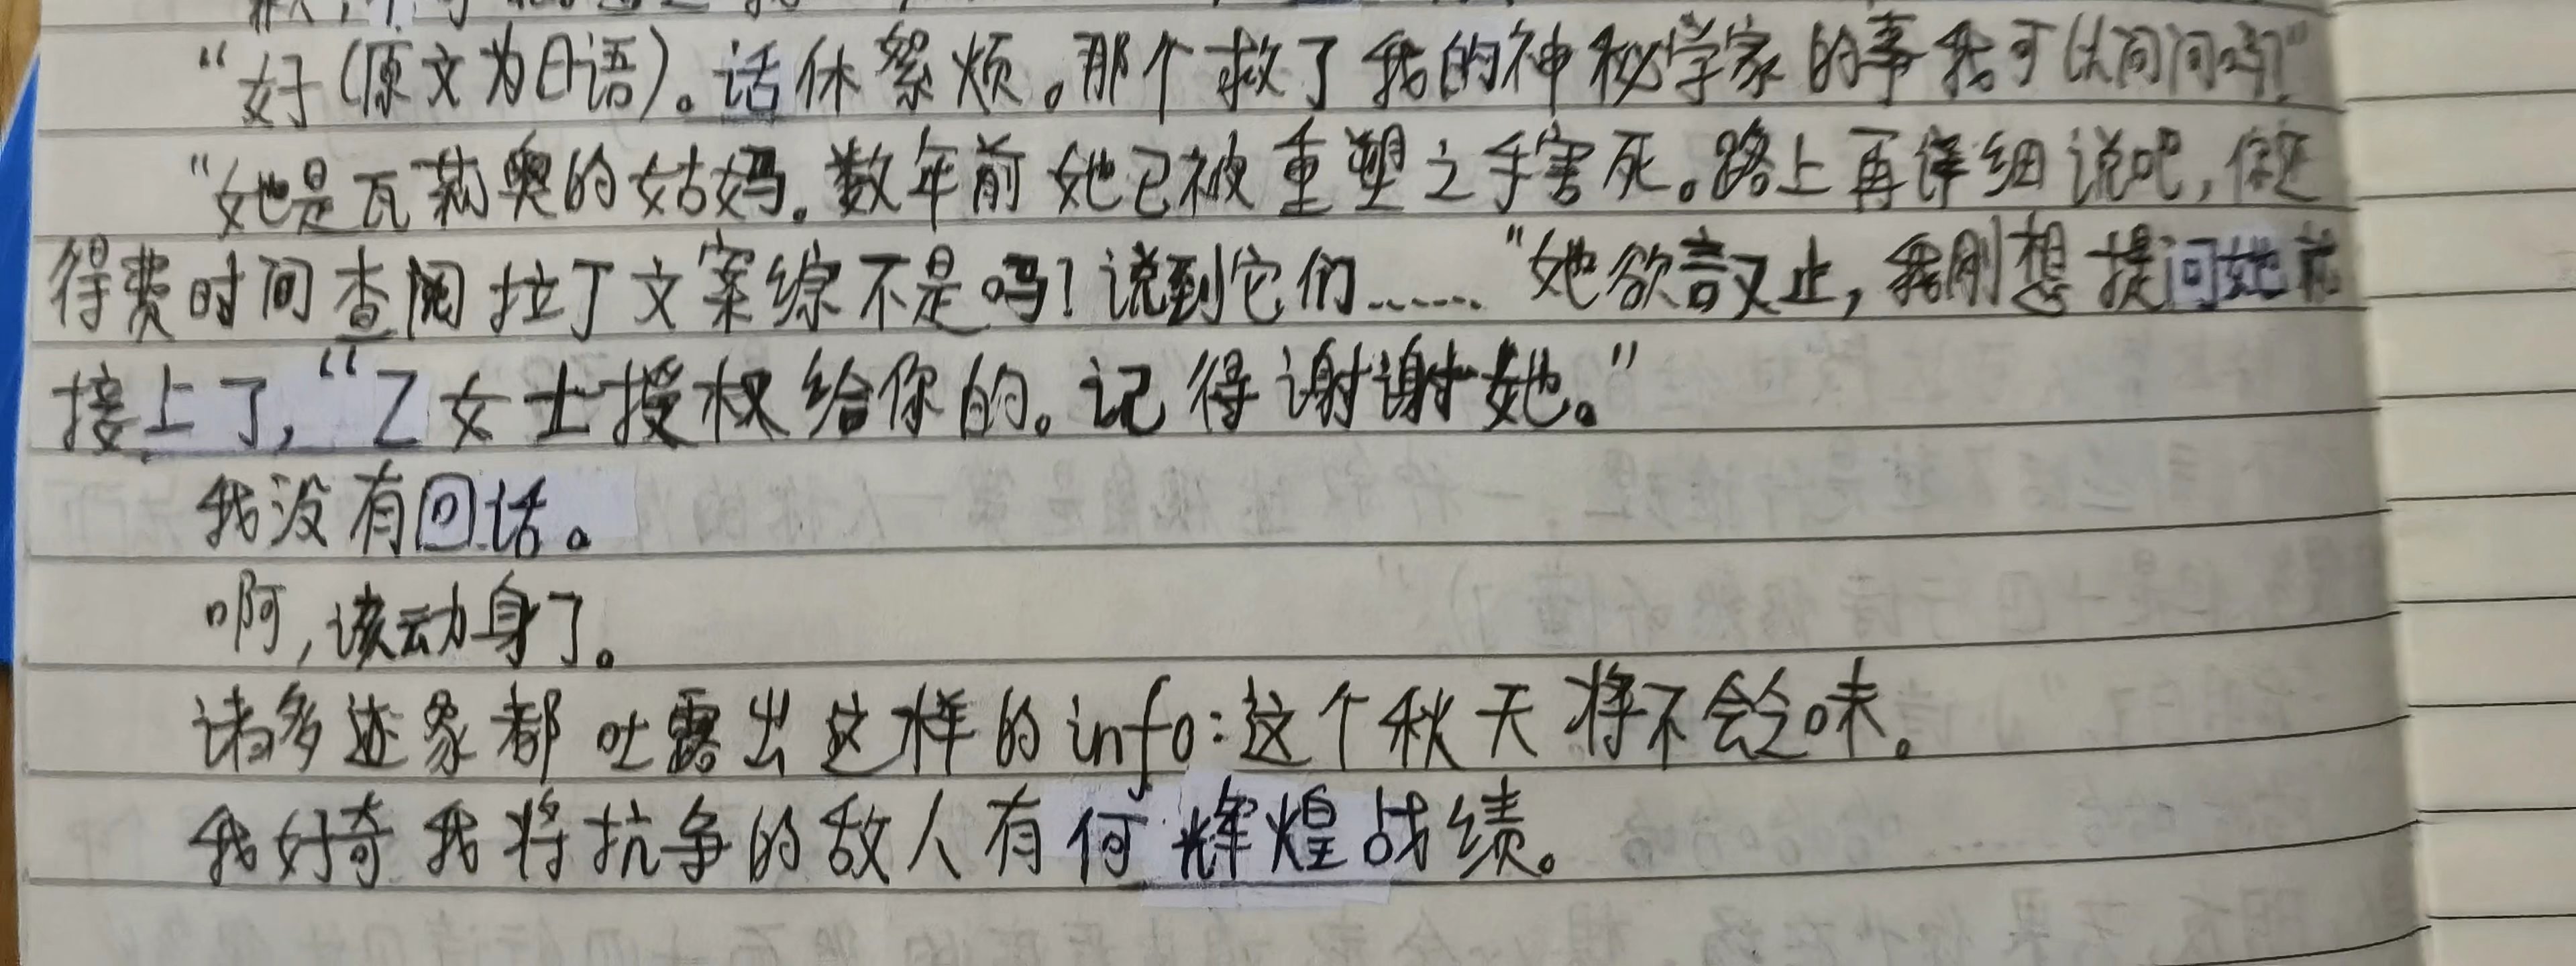 “好(原文为日语)。话休絮烦。那个救了我的神秘学家的事我可以问问吗?”
“她是瓦莉奥的姑妈。数年前她已被重塑之手害死。路上再详细说吧,你还
得费时间查阅拉丁文案综不是吗?说到它们……”她欲言又止,我刚想提问她就
接上了,“Z女士授权给你的。记得谢谢她。”
我没有回话。
啊,该动身了。
诸多迹象都吐露出这样的info:这个秋天将不会乏味。
我好奇我将抗争的敌人有何辉煌战绩。